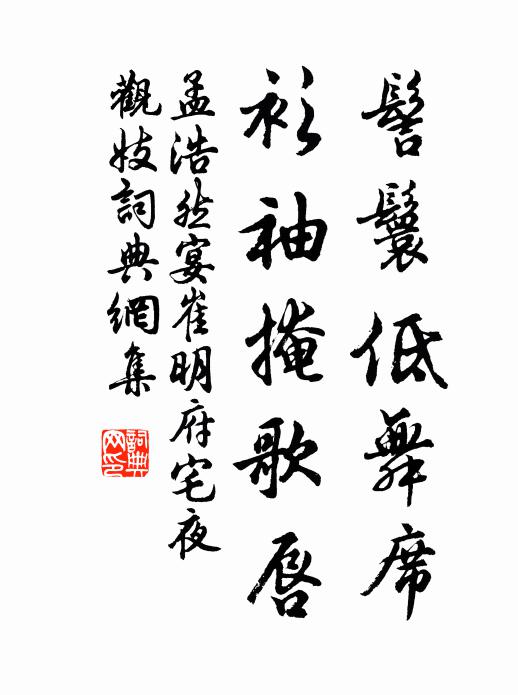 髻鬟低舞席
衫袖掩歌唇
孟浩然宴崔明府宅夜
觀妓詞典網集
詞典
网印